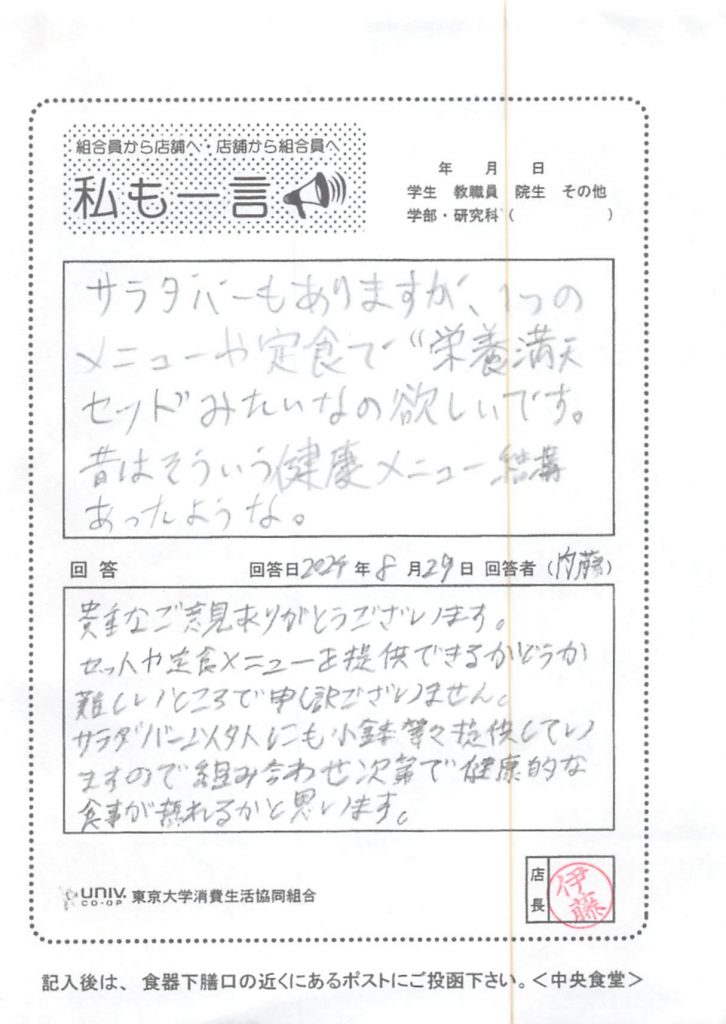 組合員から店舗へ・店舗から組合員へ
私も一言
年 月 日
学生 教職員 院生 その他
学部・研究科 ( )
サラダバーもありますが、1つの
メニューや定食で“栄養満天
セット”みたいなの欲しいです。
昔はそういう健康メニュー結構
あったような。
回答 回答日2024年8月29日 回答者(内藤)
貴重なご意見ありがとうございます。
セットや定食メニューを提供できるかどうか
難しいところで申し訳ございません。
サラダバー以外にも小鉢等々提供してい
ますので組み合わせ次第で健康的な
食事が摂れるかと思います。
UNIV.
CO-OP
東京大学消費生活協同組合
店長
伊藤
記入後は、食器下膳口の近くにあるポストにご投函下さい。<中央食堂>